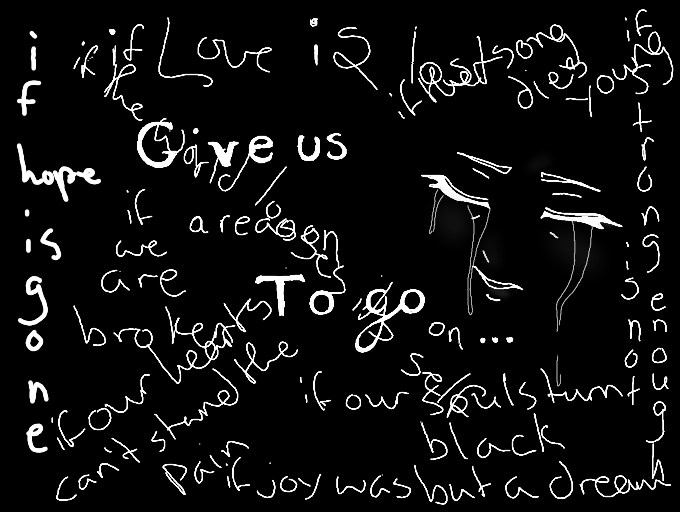 if hope is gone
if Love is
if
if the world
if
dies young
if strong isnot enough
Give us
a reason
To go
on ...
if
we
are
broken
if our hearts
can't stand the
pain
if our souls turnt
black
if joy was but a dream